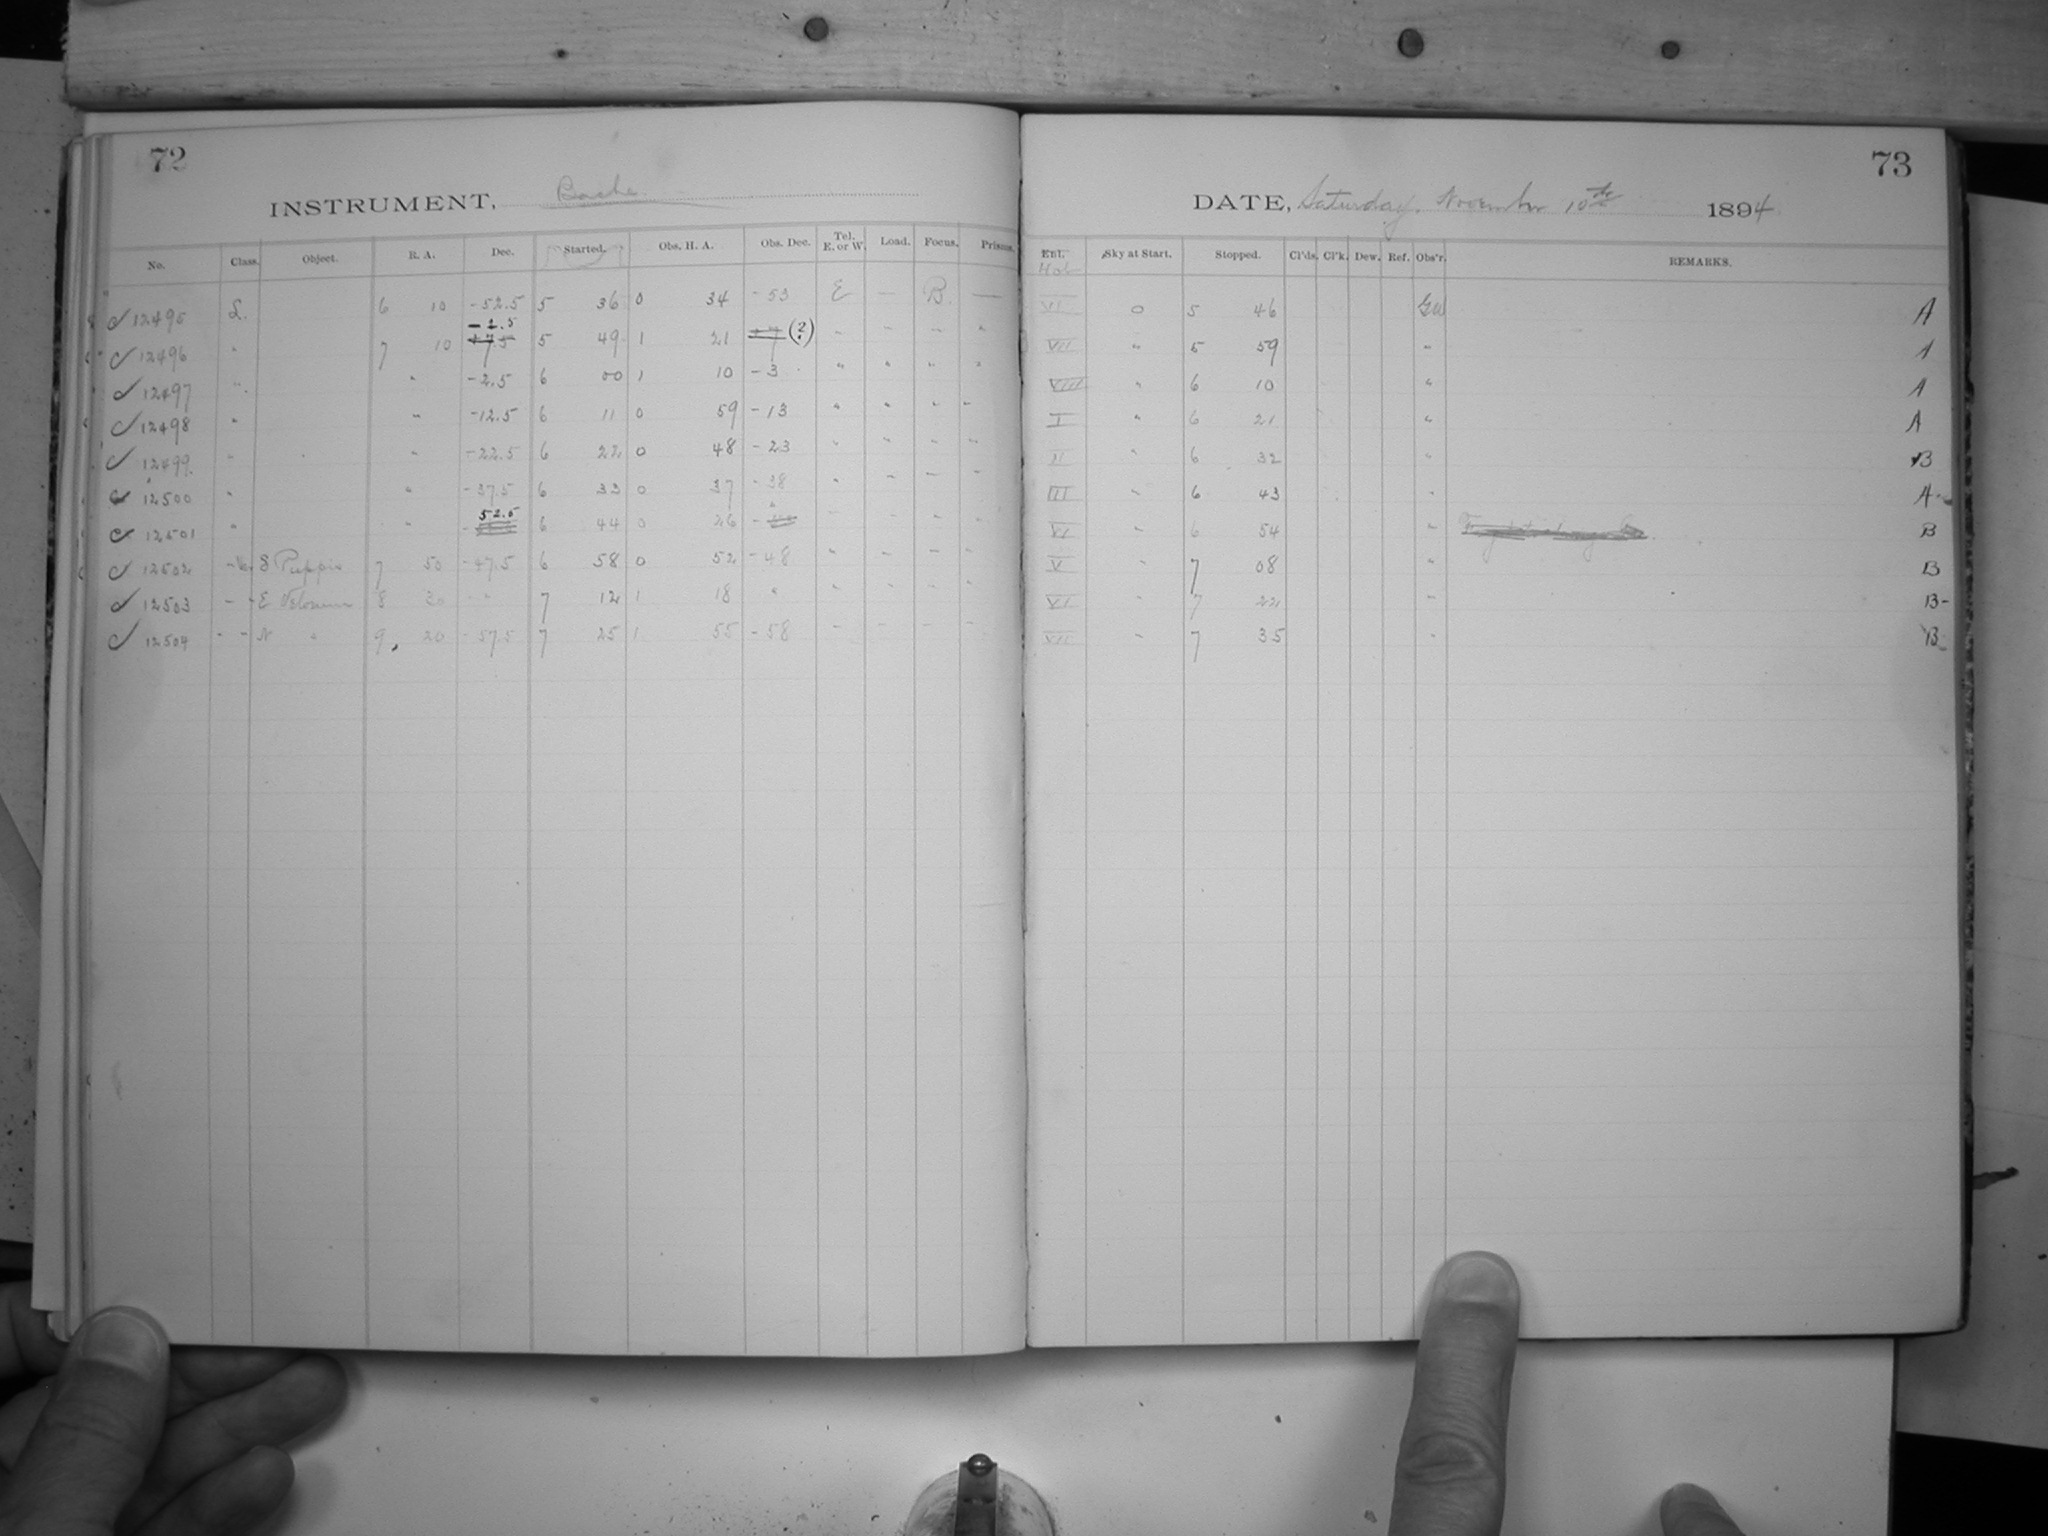 72
INSTRUMENT, Bache
No. Class. Object. R. A. Dec. Started. Obs. H. A. Obs. Dec. Tel. E. or W. Load. Focus. Prisms.
12495 L. 6 10 -52.5 5 36 0 34 -53 E — B. —
-2.5
12496 " 7 10 +7.5 5 49 1 21 (?) " " " "
12497 " " -2.5 6 00 1 10 -3 " " " "
12498 " " -12.5 6 11 0 59 -13 " " " "
12499 " " -22.5 6 22 0 48 -23 " " " "
12500 " " -37.5 6 33 0 37 -38 " " " "
52.5
12501 " " 6 44 0 26 " " " "
12502 S Puppis 7 50 -47.5 6 58 0 52 -48 " " " "
12503 " E Velorum 8 30 " 7 12 1 18 " " " " "
12504 " N " 9 20 -57.5 7 25 1 55 -58 " " " "
73
DATE, Saturday, November 10th 1894
Ent. Sky at Start. Stopped. Cl'ds. Cl'k. Dew. Ref. Obs'r. REMARKS.
VI 0 5 46 A
VII " 5 59 " A
VIII " 6 10 " A
I " 6 21 " A
II " 6 32 " B
III " 6 43 " A-
VI " 6 54 " B
V " 7 08 " B
VI " 7 22 " B-
VII " 7 35 " B-